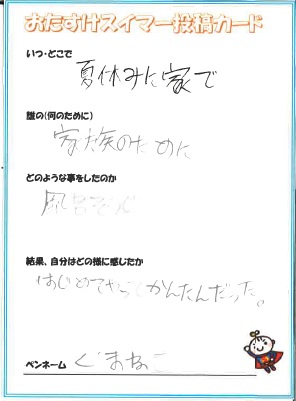 おたすけスイマー投稿カード
いつ・どこで
夏休みに家で
誰の(何のために)
家族のために
どのような事をしたのか
風呂そうじ
結果、自分はどの様に感じたか
はじめてやってかんたんだった。
ペンネーム くまねこ